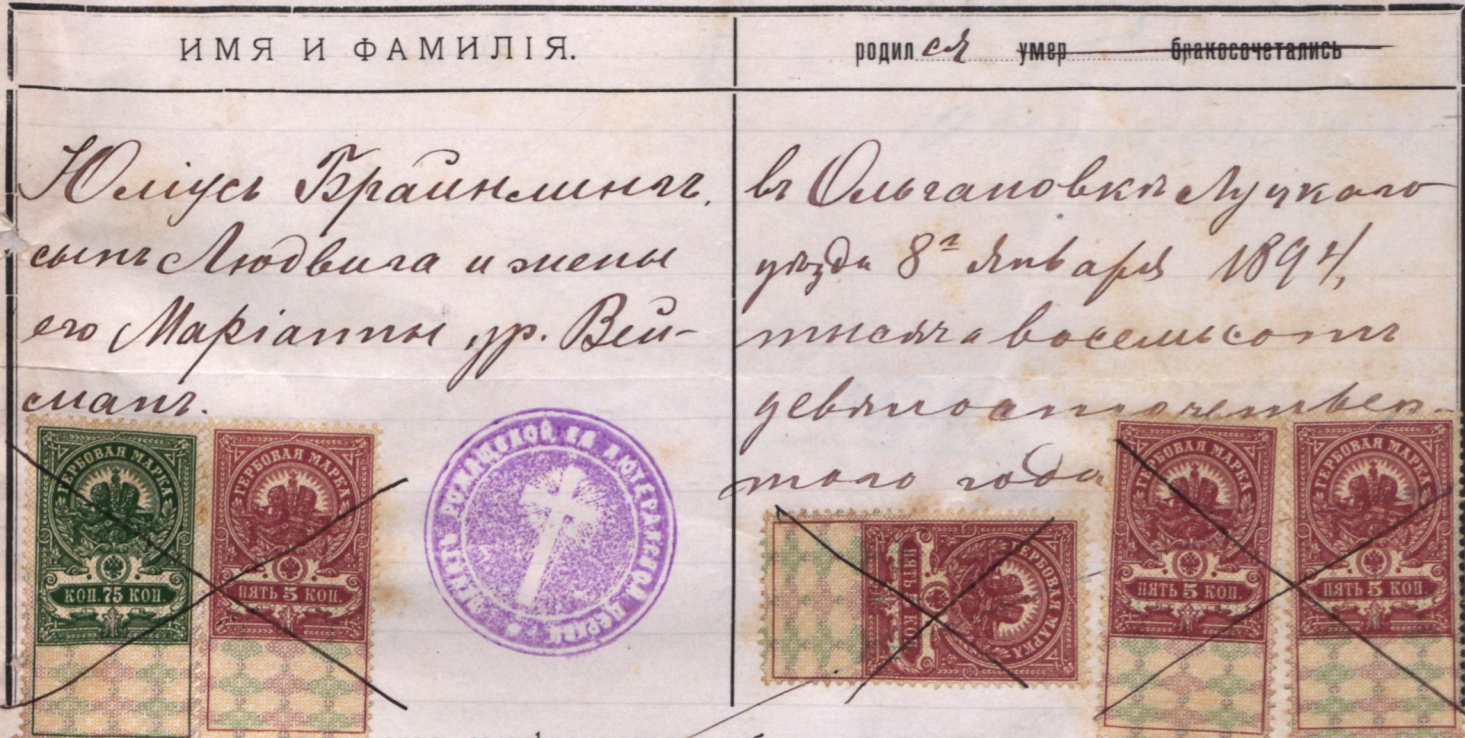 ИМЯ И ФАМИЛІЯ.
родился умер бракосочетались
Юліусъ Брайнлингъ,
сынъ Людвига и жены
его Маріанны ур. Вей-
манъ.
въ Ольгановкѣ Луцкаго
уѣзда 8го Января 1894,
тысяча восемьсотъ
девяносто четвер-
таго года
ГЕРБОВАЯ МАРКА
КОП. 75 КОП.
ГЕРБОВАЯ МАРКА
ПЯТЬ 5 КОП.
РОЖИЩСКОЙ ЕВ ЛЮТЕРАНСКОЙ ЦЕРКВИ
ГЕРБОВАЯ МАРКА
ПЯТЬ 5 КОП.
ГЕРБОВАЯ МАРКА
ПЯТЬ 5 КОП.
ГЕРБОВАЯ МАРКА
ПЯТЬ 5 КОП.